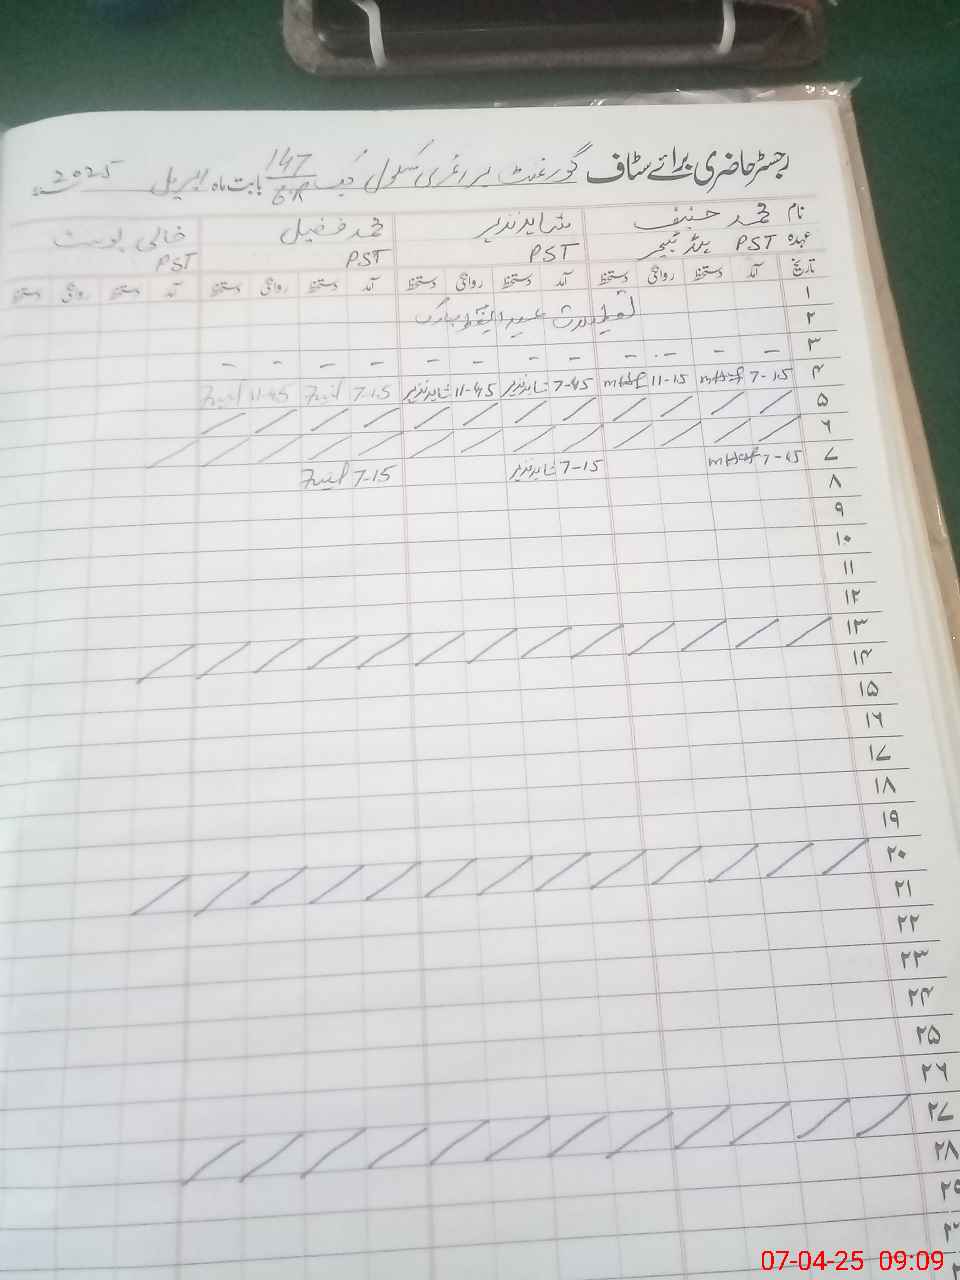 رجسٹر حاضری برائے سٹاف گورنمنٹ پرائمری سکول چک 147/E.B بابت ماہ اپریل 2025ء
نام محمد حنیف شاہد نذیر محمد فضیل خالی پوسٹ
عہدہ PST ہیڈ ٹیچر PST PST PST
تاریخ آمد دستخط روانگی دستخط آمد دستخط روانگی دستخط آمد دستخط روانگی دستخط آمد دستخط روانگی دستخط
۱
۲ تعطیلات عید الفطر مبارک
۳ - - - - - - - - - - - -
۴ 7-15 11-15 7-45 شاہد نذیر 11-45 شاہد نذیر 7-15 11-45
۵
۶
۷ 7-15 7-15 شاہد نذیر 7-15
۸
۹
۱۰
۱۱
۱۲
۱۳
۱۴
۱۵
۱۶
۱۷
۱۸
۱۹
۲۰
۲۱
۲۲
۲۳
۲۴
۲۵
۲۶
۲۷
۲۸
07-04-25 09:09